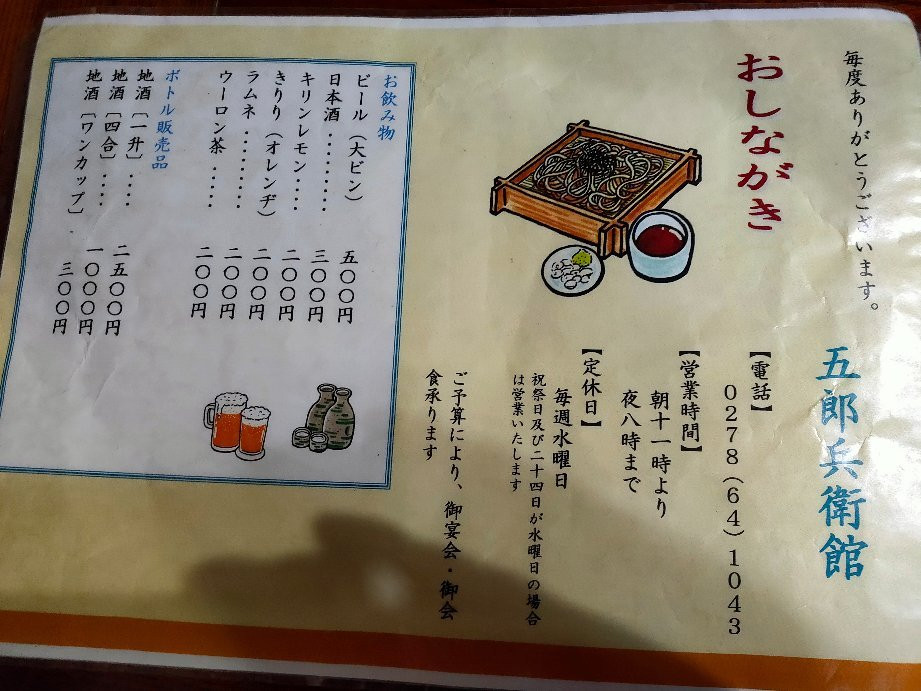 毎度ありがとうございます。
五郎兵衛館
おしながき
【電話】
０２７８（６４）１０４３
【営業時間】
朝十一時より
夜八時まで
【定休日】
毎週水曜日
祝祭日及び二十四日が水曜日の場合
は営業いたします
ご予算により、御宴会・御会
食承ります
お飲み物
ビール（大ビン） 五〇〇円
日本酒........ 三〇〇円
キリンレモン.... 二〇〇円
きりり（オレンヂ） 二〇〇円
ラムネ........ 二〇〇円
ウーロン茶..... 二〇〇円
ボトル販売品
地酒〔一升〕.... 二五〇〇円
地酒〔四合〕.... 一〇〇〇円
地酒〔ワンカップ〕. 三〇〇円